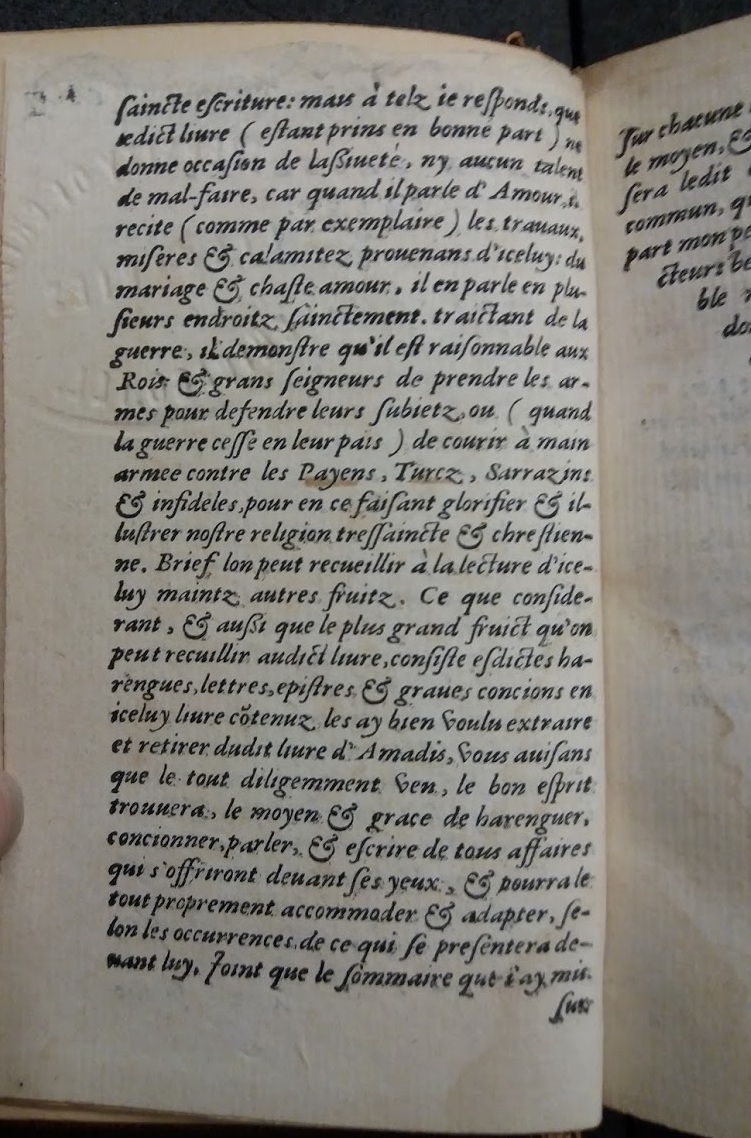 ſaincte eſcriture: mais à telz ie reſponds, que
ledict liure ( eſtant prins en bonne part ) ne
donne occaſion de laßiueté, ny aucun talent
de mal-faire, car quand il parle d'Amour, il
recite ( comme par exemplaire ) les trauaux,
miſeres & calamitez prouenans d'iceluy: du
mariage & chaſte amour, il en parle en plu-
ſieurs endroitz ſainctement. traictant de la
guerre, il demonſtre qu'il eſt raiſonnable aux
Rois & grans ſeigneurs de prendre les ar-
mes pour defendre leurs ſubietz, ou ( quand
la guerre ceſſe en leur païs ) de courir à main
armee contre les Payens, Turcz, Sarrazins
& infideles, pour en ce faiſant glorifier & il-
luſtrer noſtre religion treſſaincte & chreſtien-
ne. Brief lon peut recueillir à la lecture d'ice-
luy maintz autres fruitz. Ce que conſide-
rant, & außi que le plus grand fruict qu'on
peut recuillir audict liure, conſiſte eſdictes ha-
rengues, lettres, epiſtres & graues concions en
iceluy liure cõtenuz, les ay bien voulu extraire
et retirer dudit liure d'Amadis, vous auiſans
que le tout diligemment veu, le bon eſprit
trouuera, le moyen & grace de harenguer,
concionner, parler, & eſcrire de tous affaires
qui s'offriront deuant ſes yeux, & pourra le
tout proprement accommoder & adapter, ſe-
lon les occurrences de ce qui ſe preſentera de-
uant luy. Joint que le ſommaire que i'ay mis
ſur
Sur chacune
le moyen, &
ſera ledit
commun, qu
part mon pe
cteurs be
ble
do